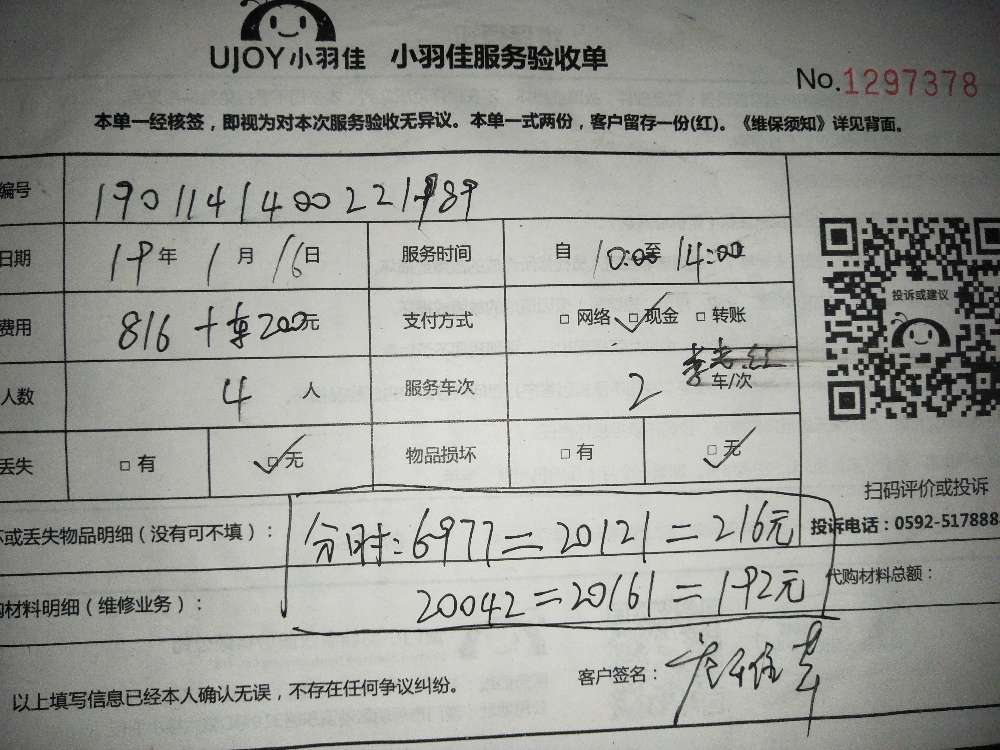 UJOY小羽佳 小羽佳服务验收单
No.1297378
本单一经核签，即视为对本次服务验收无异议。本单一式两份，客户留存一份(红)。《维保须知》详见背面。
编号
日期 19年 1月 16日 服务时间 自 10:00至 14:00
投诉或建议
费用 816 + 车200元 支付方式 □ 网络 □ 现金 □ 转账
人数 4 人 服务车次 2 车/次
丢失 □ 有 □ 无 物品损坏 □ 有 □ 无
扫码评价或投诉
坏或丢失物品明细（没有可不填）： 分时：6977=20121=216元
投诉电话：0592-5178888
购材料明细（维修业务）： 20042=20161=192元
代购材料总额：
以上填写信息已经本人确认无误，不存在任何争议纠纷。
客户签名：